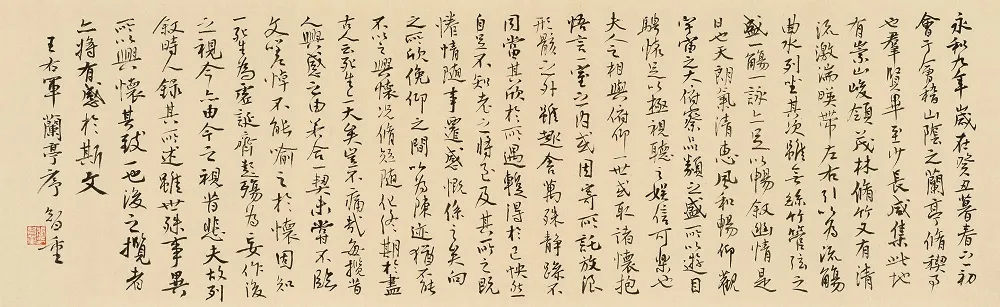 永和九年歲在癸丑暮春之初
會于會稽山陰之蘭亭脩稧事
也羣賢畢至少長咸集此地
有崇山峻領茂林脩竹又有清
流激湍暎帶左右引以為流觴
曲水列坐其次雖無絲竹管弦之
盛一觴一詠亦足以暢敘幽情是
日也天朗氣清惠風和暢仰觀
宇宙之大俯察品類之盛所以遊目
騁懷足以極視聽之娛信可樂也
夫人之相與俯仰一世或取諸懷抱
悟言一室之內或因寄所託放浪
形骸之外雖趣舍萬殊靜躁不
同當其欣於所遇暫得於己怏然
自足不知老之將至及其所之既
惓情隨事遷感慨係之矣向
之所欣俛仰之間以為陳迹猶不能
不以之興懷況脩短隨化終期於盡
古人云死生亦大矣豈不痛哉每攬昔
人興感之由若合一契未嘗不臨
文嗟悼不能喻之於懷固知
一死生為虛誕齊彭殤為妄作後
之視今亦由今之視昔悲夫故列
敘時人錄其所述雖世殊事異
所以興懷其致一也後之攬者
亦將有感於斯文
王右軍蘭亭序